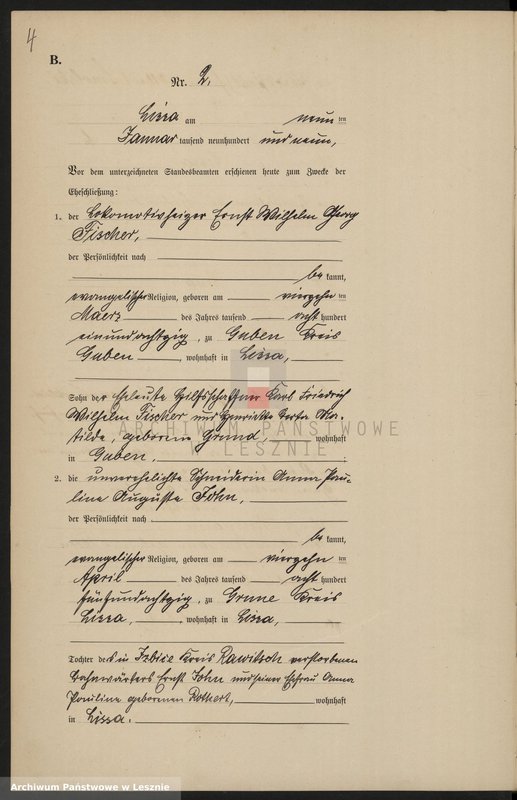 4
B.
Nr. 2.
Lissa am neun ten
Januar tausend neunhundert und neun,
Vor dem unterzeichneten Standesbeamten erschienen heute zum Zwecke der
Eheschließung:
1. der Lokomotivheizer Ernst Wilhelm Georg
Fischer,
der Persönlichkeit nach
be kannt,
evangelischer Religion, geboren am vierzehn ten
Maerz des Jahres tausend acht hundert
einundachtzig, zu Guben Kreis
Guben, wohnhaft in Lissa,
Sohn der Eheleute Hilfsschaffner Karl Friedrich
Wilhelm Fischer und Henriette Ma-
tilde, geborene Grund, wohnhaft
in Guben,
ARCHIWUM PAŃSTWOWE
W LESZNIE
2. die unverehelichte Schneiderin Anna Pau-
line Auguste John,
der Persönlichkeit nach
be kannt,
evangelischer Religion, geboren am vierzehn ten
April des Jahres tausend acht hundert
fünfundachtzig, zu Grune Kreis
Lissa, wohnhaft in Lissa,
Tochter des in Izbice Kreis Rawitsch verstorbenen
Bahnwärters Ernst John und seiner Ehefrau Anna
Pauline geborenen Rothert, wohnhaft
in Lissa.
Archiwum Państwowe w Lesznie